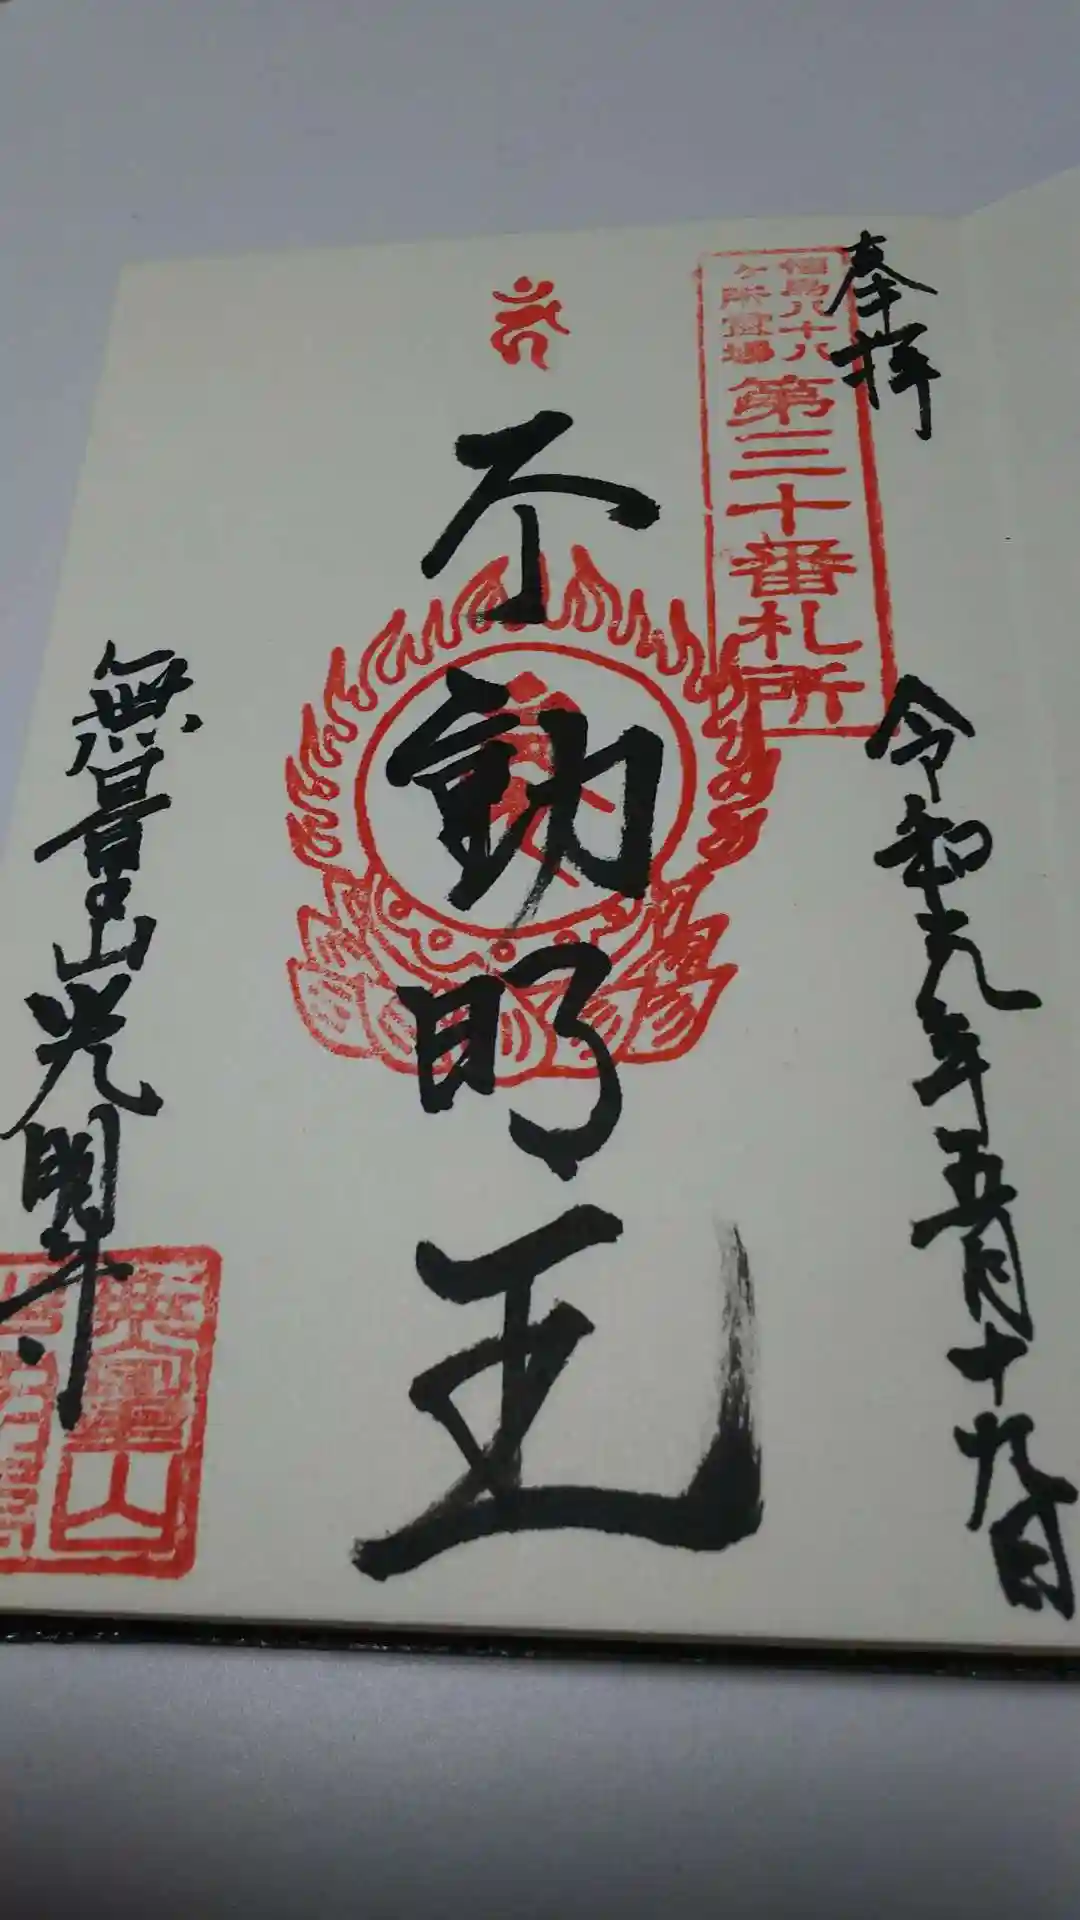 奉拝
八十八
ヶ所霊場
第三十番札所
令和元年五月十九日
不動明王
無量山光明寺
無量山